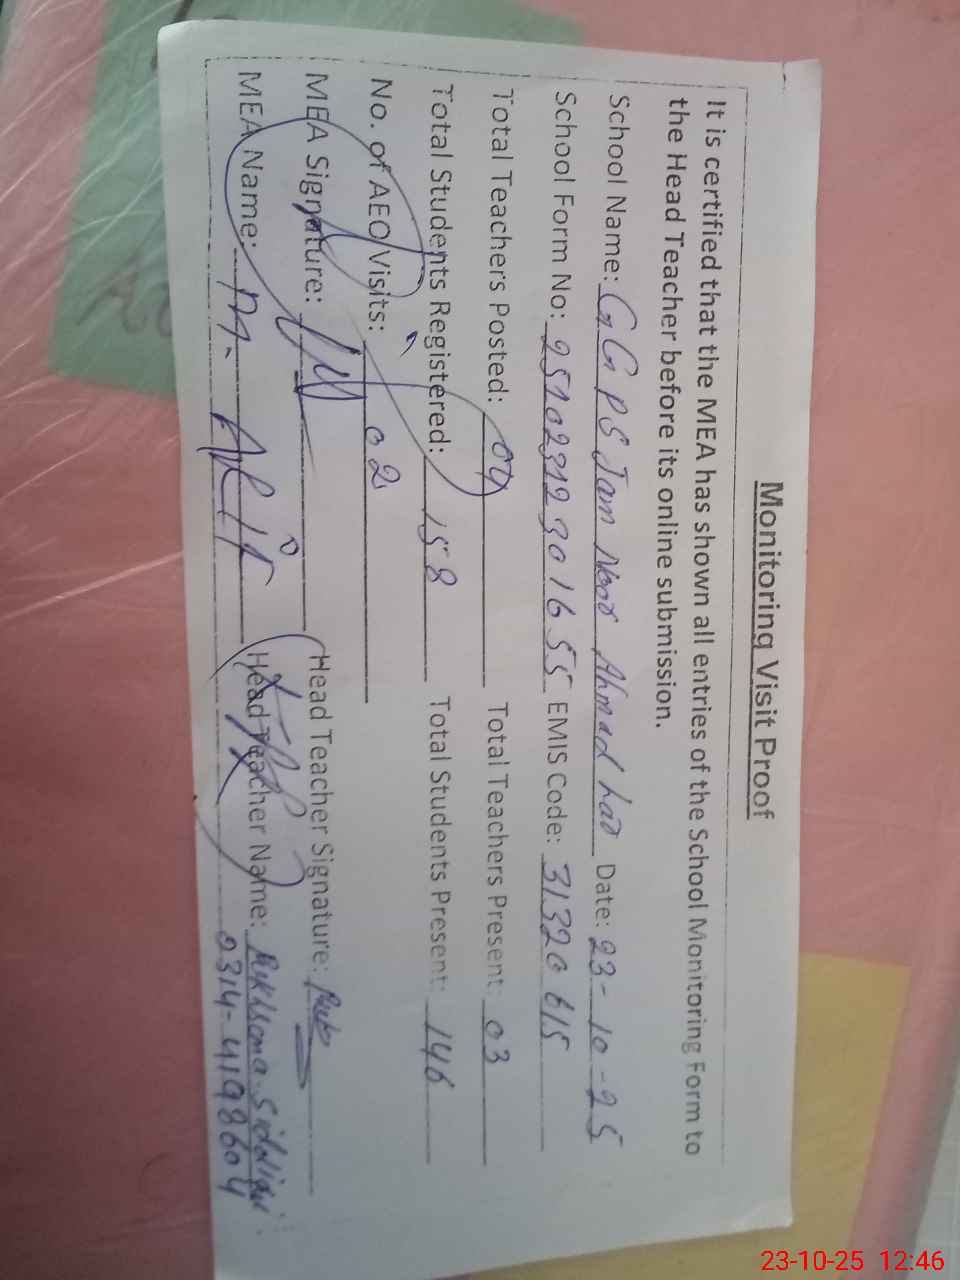 Monitoring Visit Proof
It is certified that the MEA has shown all entries of the School Monitoring Form to
the Head Teacher before its online submission.
School Name: GGPS Jam Noor Ahmad Lar Date: 23-10-25
School Form No: 2510231230 16 55 EMIS Code: 31320615
Total Teachers Posted: 04 Total Teachers Present: 03
Total Students Registered: 158 Total Students Present: 146
No. of AEO Visits: 02
MEA Signature: Head Teacher Signature:
MEA Name: M. Head Teacher Name: Siddiqui
0314-4198604
23-10-25 12:46